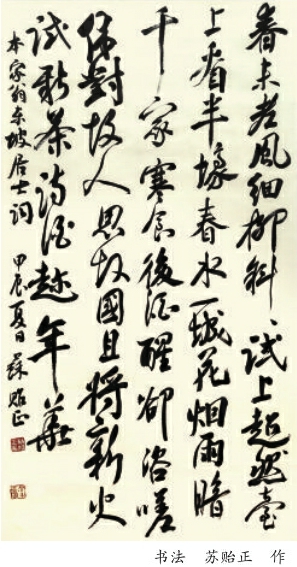 春未老風细柳斜〻试上超然臺
上看半壕春水一城花烟雨暗
千家寒食後酒醒卻咨嗟
休對故人思故國且將新火
试新茶诗酒趁年華
本家翁东坡居士词 甲辰夏日 蘇贻正
书法 苏贻正 作